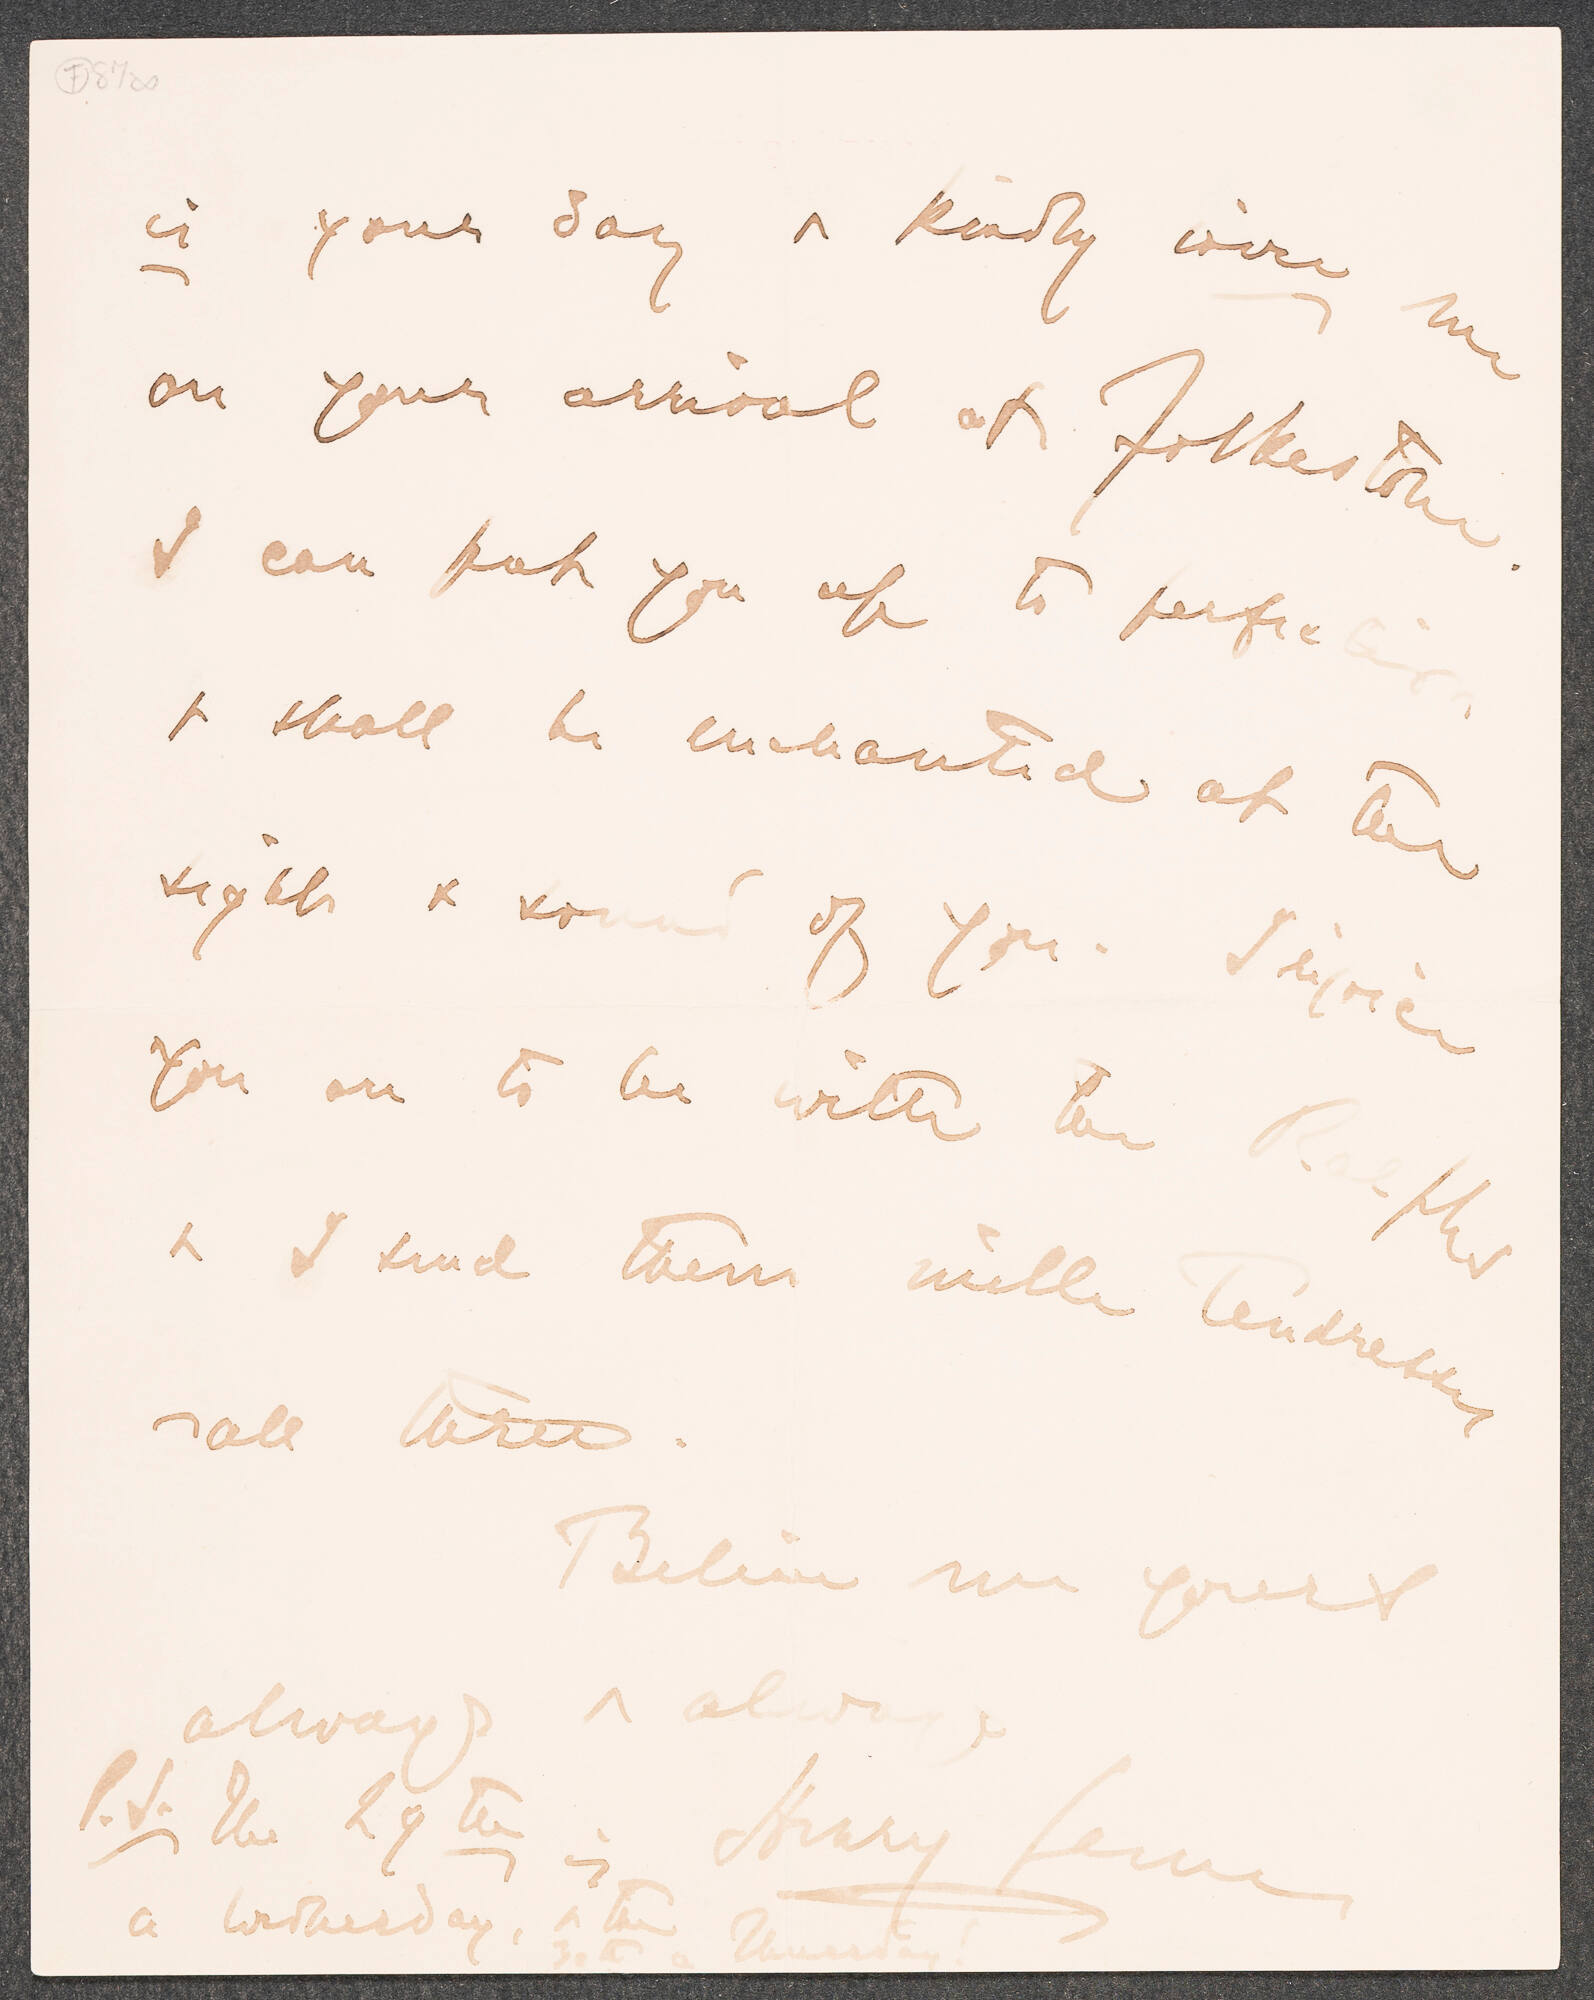 is your day & kindly wire me
on your arrival at Folkestone.
I can put you up to perfection
& shall be enchanted at the
sight & sound of you. I rejoice
you are to be with the Ralphs
& I send them mille tendresses
all three.
Believe me yours
always & always
Henry James
P.S. The 29th is
a Wednesday, & the
30th a Thursday!